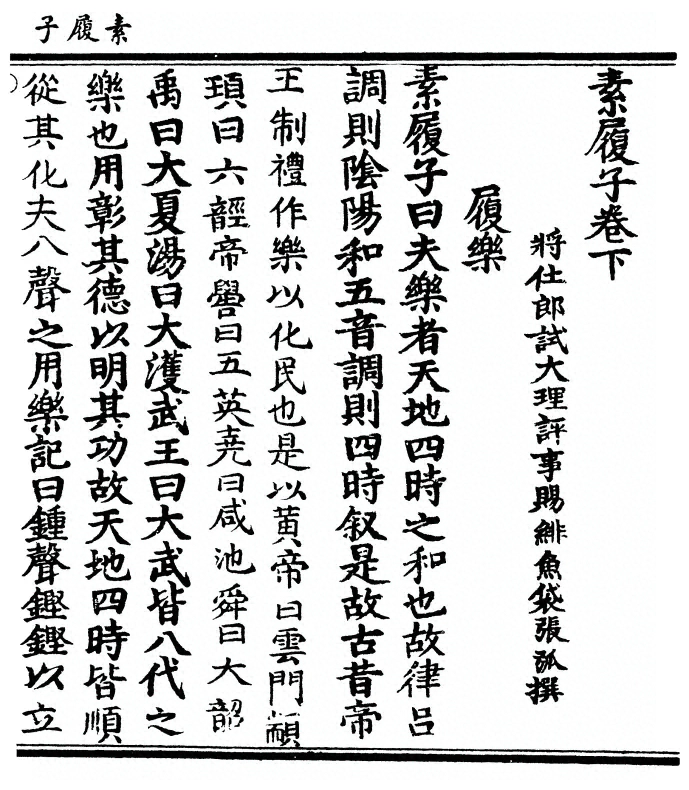 素履子
素履子卷下
將仕郎試大理評事賜緋魚袋張弧撰
履樂
素履子曰夫樂者天地四時之和也故律呂
調則陰陽和五音調則四時叙是故古昔帝
王制禮作樂以化民也是以黄帝曰雲門顓
頊曰六韶帝嚳曰五英堯曰咸池舜曰大韶
禹曰大夏湯曰大濩武王曰大武皆八代之
樂也用彰其德以明其功故天地四時皆順
從其化夫八聲之用樂記曰鍾聲鏗鏗以立